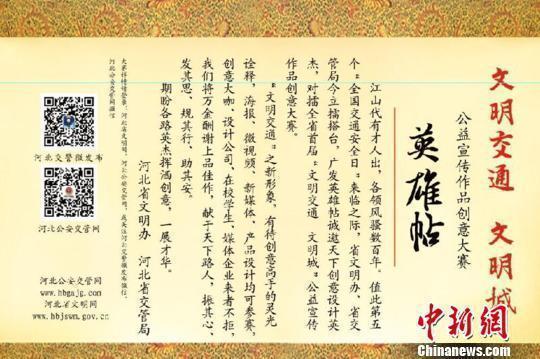 文明交通 文明城
公益宣传作品创意大赛
英雄帖
江山代有才人出，各领风骚数百年。值此第五
个“全国交通安全日”来临之际，省文明办、省交
管局今立擂搭台，广发英雄帖诚邀天下创意设计英
杰，对擂全省首届“文明交通 文明城”公益宣传
作品创意大赛。
“文明交通”之新形象，有待创意高手的灵光
诠释，海报、微视频、新媒体、产品设计均可参赛，
创意大咖、设计公司、在校学生、媒体企业来者不拒，
我们将万金酬谢上品佳作，献于天下路人，振其心、
发其思、规其行、助其安。
期盼各路英杰挥洒创意，一展才华。
河北省文明办 河北省交管局
河北交警微发布
河北公安交管网
河北公安交管网
www.hbgajg.com
河北省文明网
www.hbjswm.gov.cn
中新网
Chinanews.com